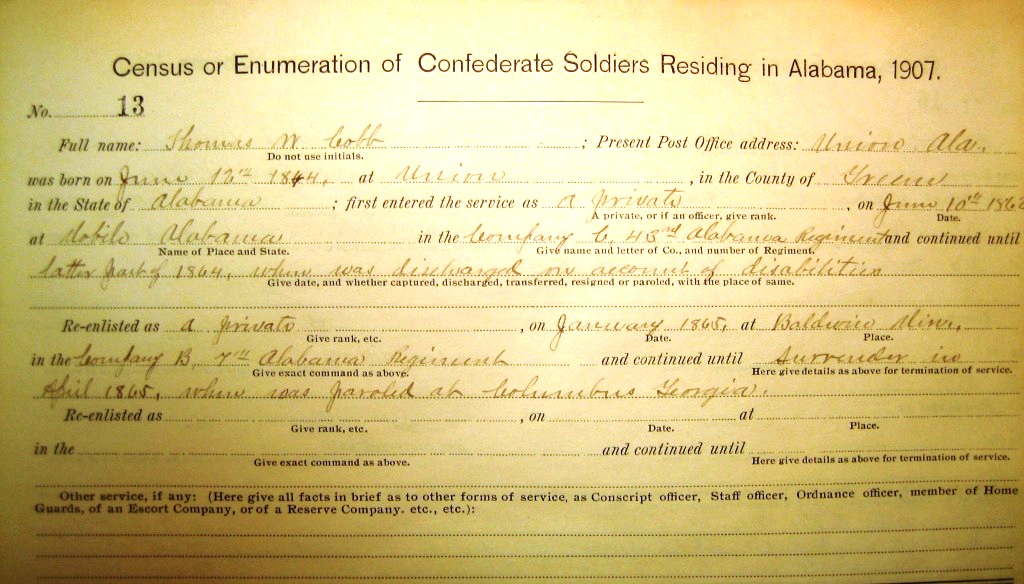 Census or Enumeration of Confederate Soldiers Residing in Alabama, 1907.
No. 13
Full name: Thomas W Cobb ; Present Post Office address: Union Ala.
Do not use initials.
was born on June 12th 1844, at Union , in the County of Green
in the State of Alabama ; first entered the service as a private , on June 10th 1862
A private, or if an officer, give rank. Date.
at Mobile Alabama in the Company C, 43rd Alabama Regiment and continued until
Name of Place and State. Give name and letter of Co., and number of Regiment.
latter part of 1864, when was discharged on account of disabilities
Give date, and whether captured, discharged, transferred, resigned or paroled, with the place of same.
Re-enlisted as a private , on January 1865, at Baldwin Miss.
Give rank, etc. Date. Place.
in the Company B, 7th Alabama Regiment and continued until Surrender in
Give exact command as above. Here give details as above for termination of service.
April 1865, when was paroled at Columbus Georgia.
Re-enlisted as , on at
Give rank, etc. Date. Place.
in the and continued until
Give exact command as above. Here give details as above for termination of service.
Other service, if any: (Here give all facts in brief as to other forms of service, as Conscript officer, Staff officer, Ordnance officer, member of Home
Guards, of an Escort Company, or of a Reserve Company. etc., etc.):